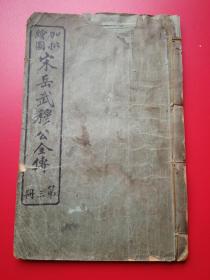 加批
繪圖
宋岳武穆公全傳
第三冊